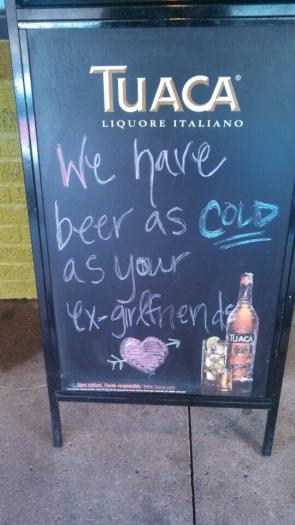 TUACA®
LIQUORE ITALIANO
We have
beer as COLD
as your
ex-girlfriends
TUACA
Start chilled. Finish responsibly. www.tuaca.com